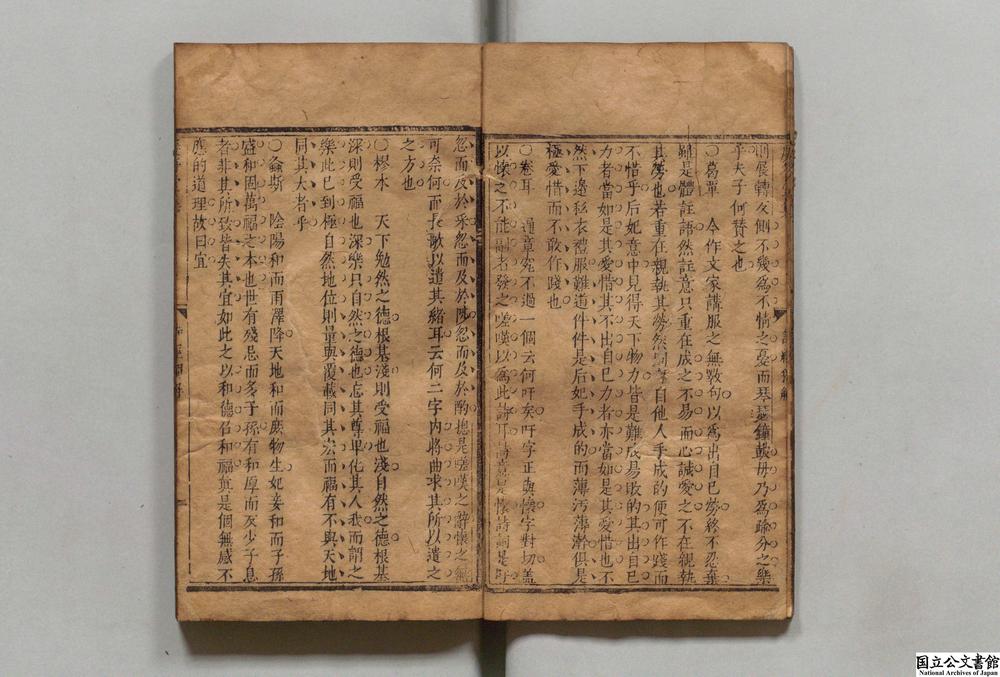 則展轉反側不幾為不情之憂而琴瑟鐘鼓毋乃為踰分之樂
乎夫子何贊之也
○葛覃　今作文家講服之無斁句以為出自已勞終不忍棄
雖是體註語然註意只重在成之不易而心誠愛之不在親執
其勞也若重在親執其勞然則自他人手成的便可作踐而
不惜乎后妃意中見得天下物力皆是難成易敗的其出自已
力者當如是其愛惜其不出自已力者亦當如是其愛惜也不
然下邊衣禮服難道件件是后妃手成的而薄汚薄澣俱是
極愛惜而不敢作踐也
○卷耳　通章究不過一個云何吁矣吁字正與懷字對切蓋
以懷之不能副者發之嗟嘆以為此詩耳詩意是懷詩詞是吁
忽而及於采忽而及於陟忽而及於酌摠是嗟嘆之辭懷之無
可奈何而長歌以遣其緒耳云何二字内將曲求其所以遣之
之方也
○樛木　天下勉然之德根基淺則受福也淺自然之德根基
深則受福也深樂只自然之德也忘其尊卑化其人我而謂之
樂此已到極自然地位則量與覆載同其宏而福有不與天地
同其大者乎
○螽斯　陰陽和而雨澤降天地和而庶物生妃妾和而子孫
盛和固萬福之本也世有殘忌而多子孫有和厚而反少子息
者非其所致皆失其宜如此之以和德召和福真是個無感不
應的道理故曰宜
国立公文書館
National Archives of Japan